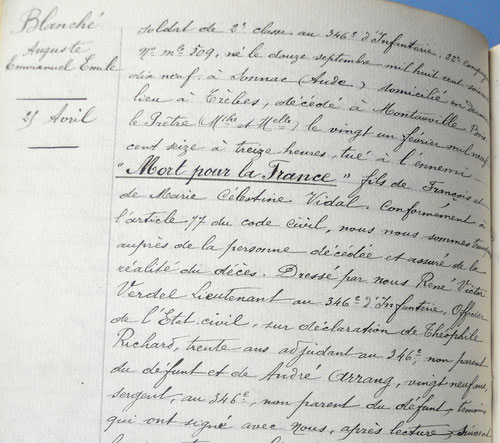 Blanché
Auguste
Emmanuel Emile
25 Avril
soldat de 2e classe au 346e d'Infanterie, 22e Compagnie
No mle 509, né le douze septembre mil huit cent soixante
dix neuf, à Jonnac (Aude) domicilié en dernier
lieu à Trèbes, décédé à Montauville Bois
le Prêtre (Mthe et Melle) le vingt un février mil neuf
cent seize à treize heures, tué à l'ennemi
"Mort pour la France" fils de François et
de Marie Célestine Vidal. Conformément à
l'article 77 du code civil, nous nous sommes
auprès de la personne décédée et assuré de la
réalité du décès. Dressé par nous René Victor
Verdel Lieutenant au 346e d'Infanterie, Officier
de l'Etat civil, sur déclaration de Théophile
Richard, trente ans adjudant au 346e, non parent
du défunt et de André Arrang, vingt neuf ans,
sergent, au 346e, non parent du défunt, témoins
qui ont signé avec nous, après lecture, suivent